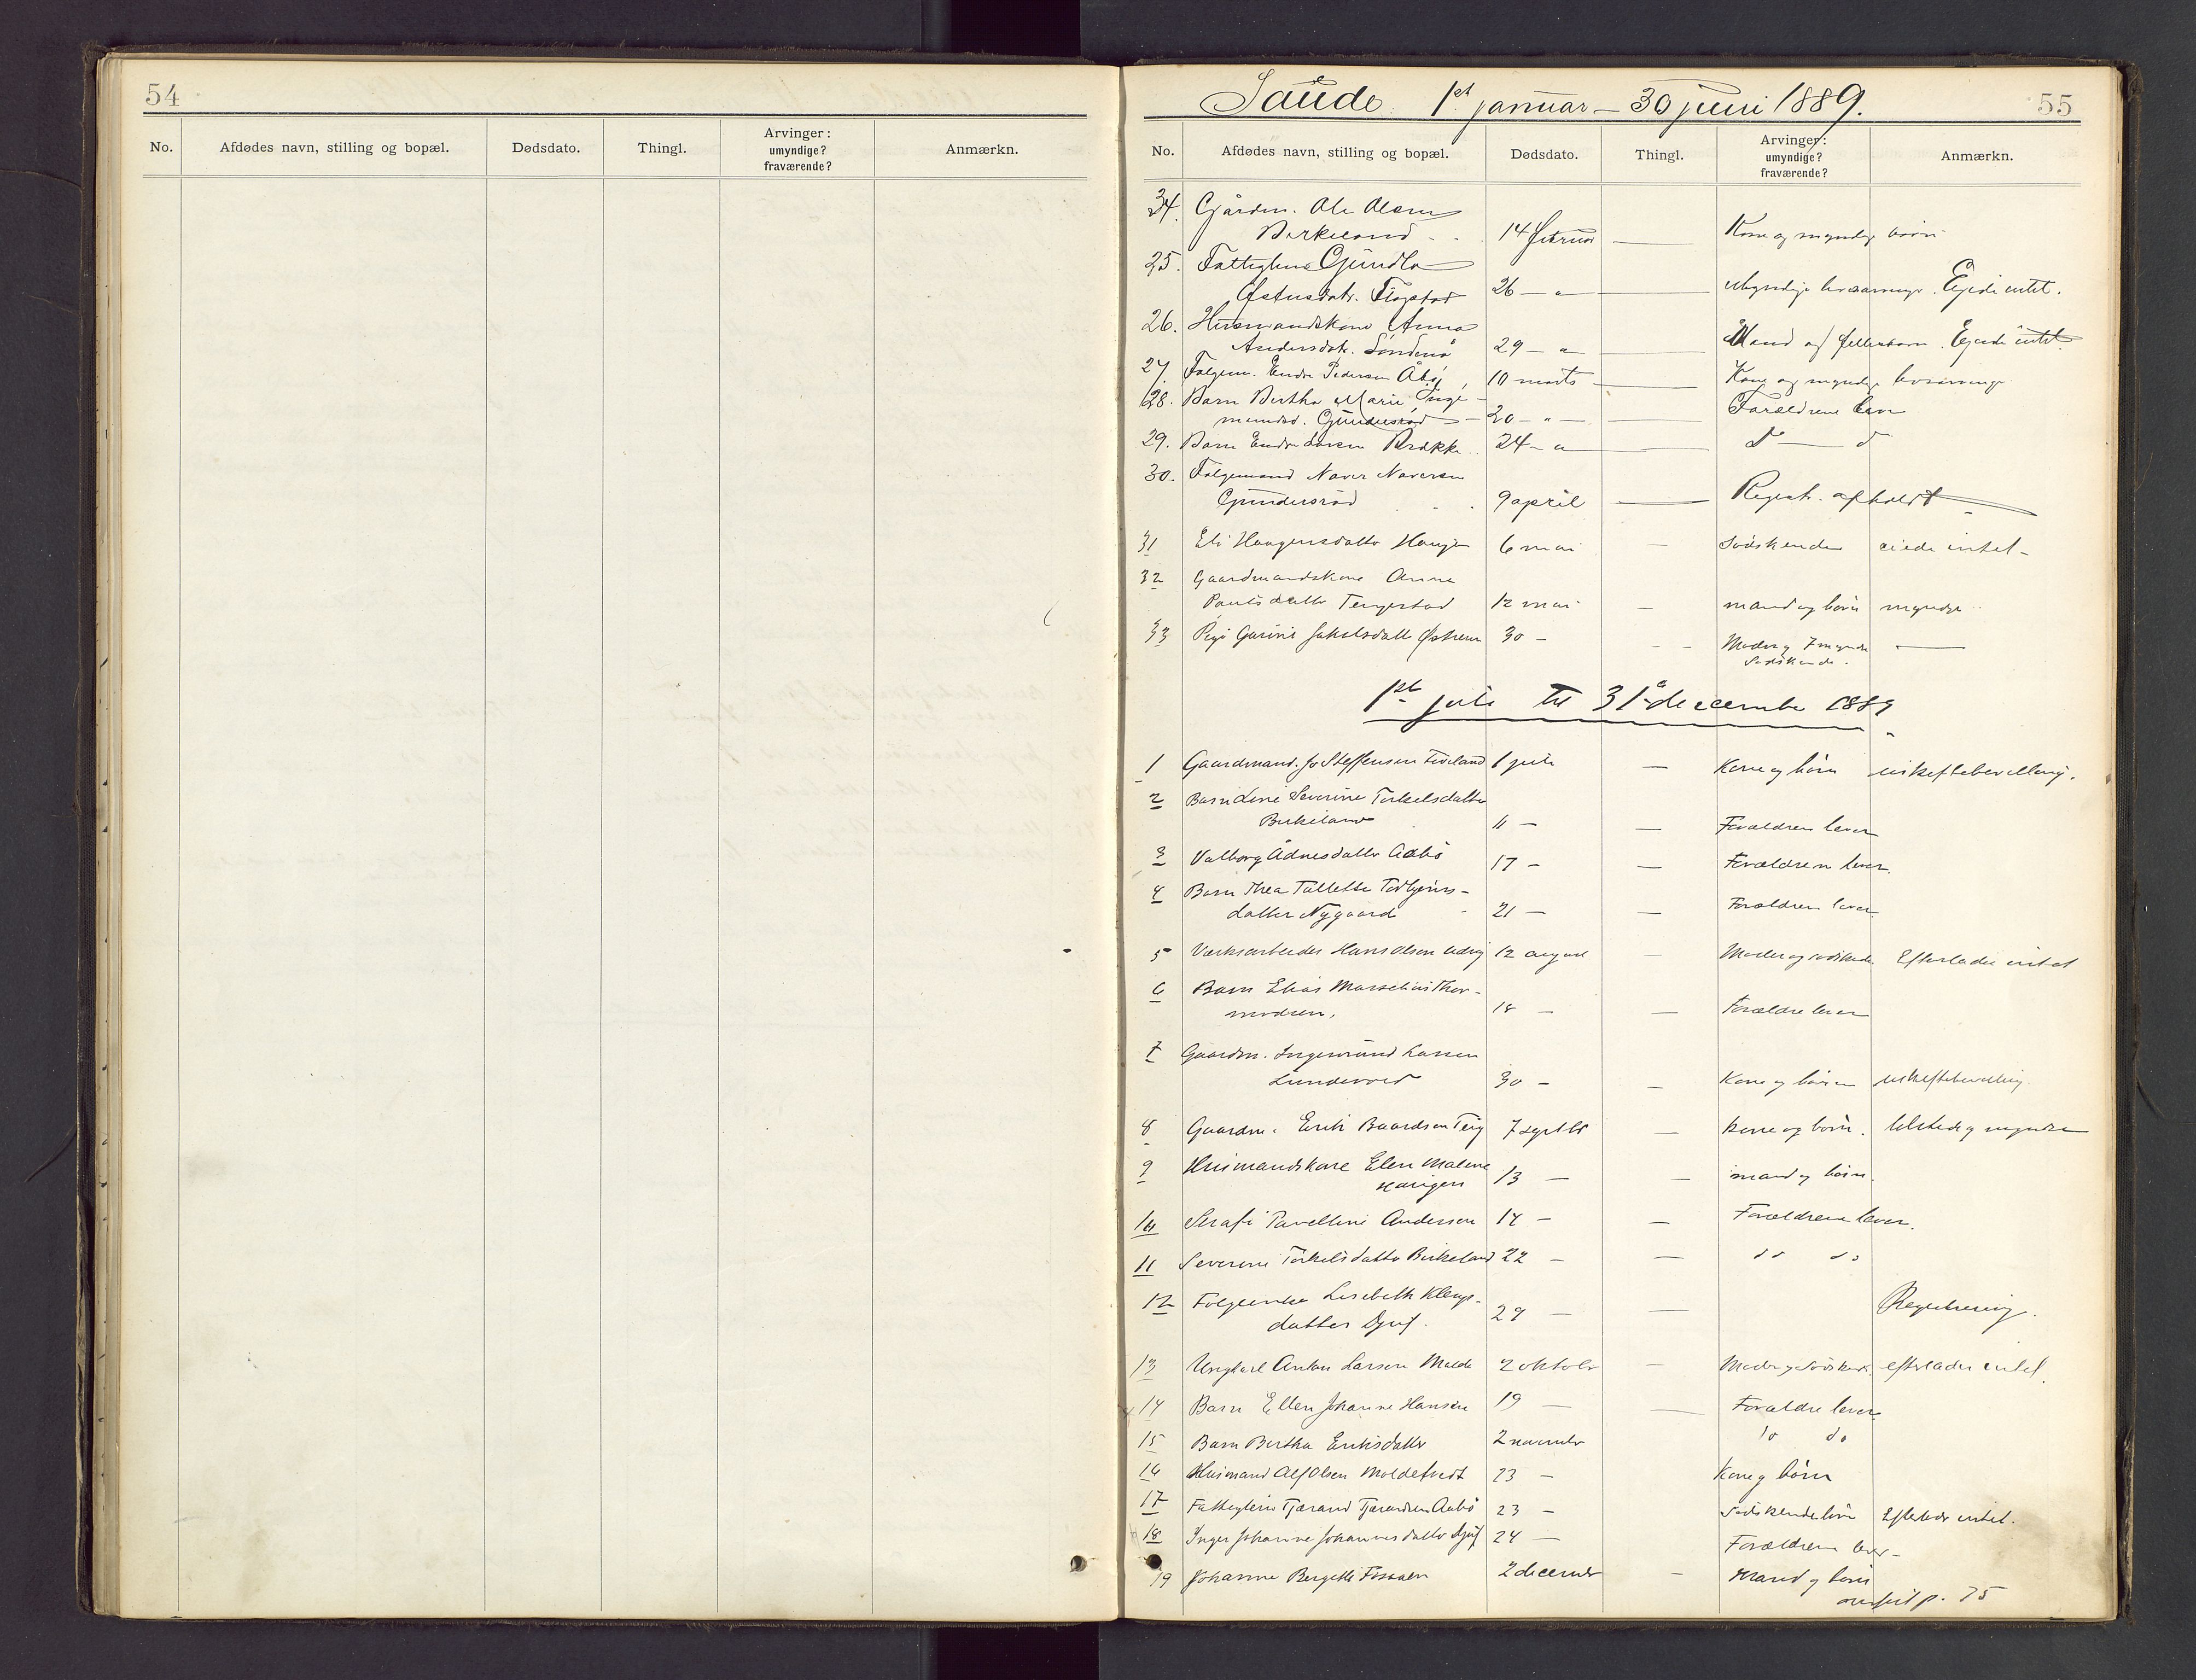 54
No.
Afdødes navn, stilling og bopæl.
Dødsdato.
Thingl.
Arvinger:
umyndige?
fraværende?
Anmærkn.
Saude. 1st januar – 30 juni 1889.
55
No.
Afdødes navn, stilling og bopæl.
Dødsdato.
Thingl.
Arvinger:
umyndige?
fraværende?
Anmærkn.
34. Gårdm. Ole Olsen
Birkeland 14 februar — Kone og myndige børn
25. Fattiglem Gundla
Østensdatr. 26 — " — myndige livsarvinge. Ejede intet.
26. Husmandskone Anna
Andersdtr. Søndenå 29 — " — Mand og fellesbarn. Ejede intet
27. Følgem. Endre Pedersen Åbø, 10 marts — Kone og myndige livsarvinge
28. Barn Bertha Marie Inge-
mundsd. Gundersrød — 20 — " — Forældrene lever
29. Barn Endre Larsen Brekke 24 — " — do — do
30. Følgemand Naver Naversen
Gundersrød 9 april — Registr. afholdt
31 Eli Haagensdatter Haugen 6 mai — Sødskende eiede intet —
32 Gaardmandskone Anne
Poulsdatter Tengestad 12 mai — mand og børn myndige
33 Gurine Jakobsdatter Østrem 30 — — — Moder og 7 myndige —
Sødskende.
1ste juli til 31 december 1889
1 Gaardmand. Jo Steffensen Fiveland 1 juli — Kone og børn uskiftebevilling.
2 Barn Line Severine Torkelsdatter
Birkeland 11 — — Forældrene lever
3 Valborg Ådnesdatter Aabø 17 — — Forældrene lever.
4 Barn Thea Tallette Torbjørns-
datter Nygaard 21 — — Forældrene lever
5 Værksarbeider Hans Olsen 12 august — Moder og sødskende Efterlader intet
6 Barn Elias Marselius Thor-
modsen, 18 — — Forældre lever
7 Gaardm. Ingemund Larsen
Lundevold 30 — — Kone og børn uskiftebevilling.
8 Gaardm. Erik Baardsen Teig 7 septbr — Kone og børn. tilstede og myndige
9 Husmandskone Elen Malene
Haugen 13 — — mand og børn.
10 Serafi Pavelline Andersen 14 — — Forældrene lever.
11 Severine Torkelsdatter Birkeland 22 — — do do
12 Følgeenke Lisebeth Klengs-
datter Djuf. 29 — — Registrering.
13 Ungkarl Anton Larsen Molde 2 oktober — Moder og Sødskende. efterlader intet.
14 Barn Ellen Johanne Hansen 19 — — Forældre lever
15 Barn Bertha Eriksdatter 2 november do do
16 Husmand Alf Olsen Moldetvedt 23 — Kone og børn
17 Fattiglem Tjærand Tjærandsen Aabø 23 — Sødskendebørn Efterlader intet.
18 Inger Johanne Johannesdatter Djuf 24 — Forældrene lever —
19 Johanne Bergitte Fossaen 2 december — Mand og børn
overført p. 75